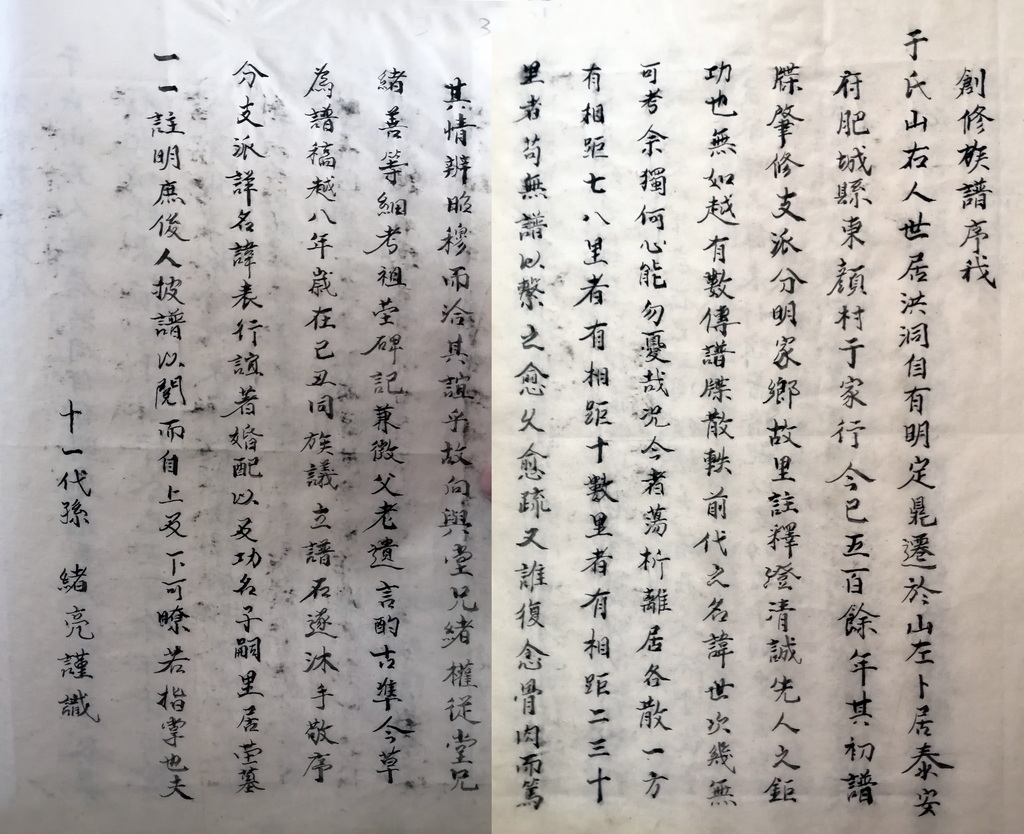 創修族譜序我
于氏山右人世居洪洞自有明定鼎遷於山左卜居泰安
府肥城縣東顏村于家行今已五百餘年其初譜
牒肇修支派分明家鄉故里註釋澄清誠先人之鉅
功也無如越有數傳譜牒散軼前代之名諱世次幾無
可考余獨何心能勿憂哉况今者蕩析離居各散一方
有相距七八里者有相距十數里者有相距二三十
里者苟無譜以繫之愈久愈疏又誰復念骨肉而篤
其情辨昭穆而洽其誼乎故向與堂兄緒權從堂兄
緒善等細考祖塋碑記兼徵父老遺言酌古準今草
為譜稿越八年歲在己丑同族議立譜石遂沐手敬序
分支派詳名諱表行誼著婚配以及功名子嗣里居塋墓
一一註明庶後人披譜以閱而自上及下可瞭若指掌也夫
十一代孫 緒亮謹識